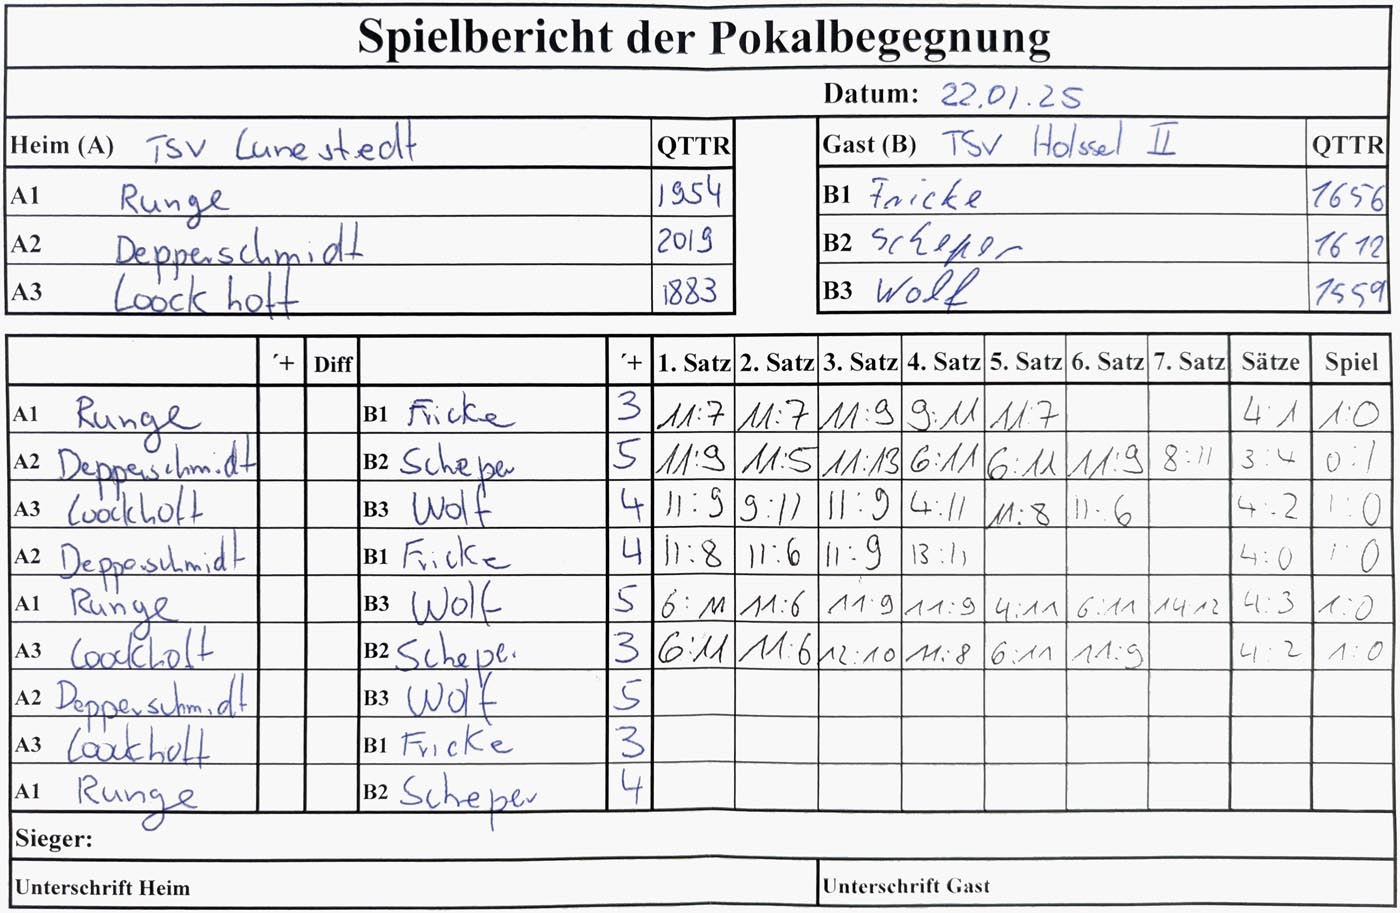 Spielbericht der Pokalbegegnung
Datum: 22.01.25
Heim (A) TSV Lunestedt QTTR Gast (B) TSV Holssel II QTTR
A1 Runge 1954 B1 Fricke 1656
A2 Depperschmidt 2019 B2 Scheper 1612
A3 Loockhoff 1883 B3 Wolf 1559
´+ Diff ´+ 1. Satz 2. Satz 3. Satz 4. Satz 5. Satz 6. Satz 7. Satz Sätze Spiel
A1 Runge B1 Fricke 3 11:7 11:7 11:9 9:11 11:7 4:1 1:0
A2 Depperschmidt B2 Scheper 5 11:9 11:5 11:13 6:11 6:11 11:9 8:11 3:4 0:1
A3 Loockhoff B3 Wolf 4 11:9 9:11 11:9 4:11 11:8 11:6 4:2 1:0
A2 Depperschmidt B1 Fricke 4 11:8 11:6 11:9 13:11 4:0 1:0
A1 Runge B3 Wolf 5 6:11 11:6 11:9 11:9 4:11 6:11 14:12 4:3 1:0
A3 Loockhoff B2 Scheper 3 6:11 11:6 12:10 11:8 6:11 11:9 4:2 1:0
A2 Depperschmidt B3 Wolf 5
A3 Loockhoff B1 Fricke 3
A1 Runge B2 Scheper 4
Sieger:
Unterschrift Heim Unterschrift Gast